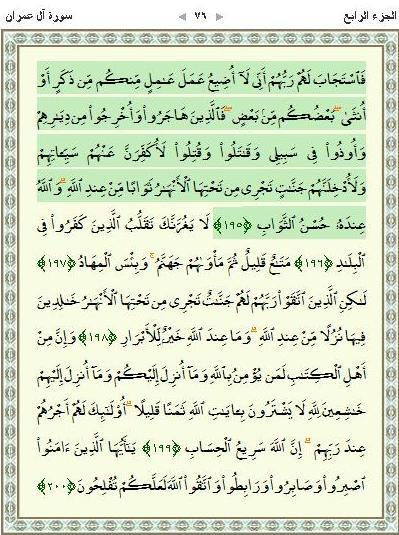 الجزء الرابع
٧٦
سورة آل عمران
فَٱسْتَجَابَ لَهُمْ رَبُّهُمْ أَنِّى لَآ أُضِيعُ عَمَلَ عَـٰمِلٍ مِّنكُم مِّن ذَكَرٍ أَوْ
أُنثَىٰ ۖ بَعْضُكُم مِّنۢ بَعْضٍ ۖ فَٱلَّذِينَ هَاجَرُوا۟ وَأُخْرِجُوا۟ مِن دِيَـٰرِهِمْ
وَأُوذُوا۟ فِى سَبِيلِى وَقَـٰتَلُوا۟ وَقُتِلُوا۟ لَأُكَفِّرَنَّ عَنْهُمْ سَيِّـَٔاتِهِمْ
وَلَأُدْخِلَنَّهُمْ جَنَّـٰتٍ تَجْرِى مِن تَحْتِهَا ٱلْأَنْهَـٰرُ ثَوَابًا مِّنْ عِندِ ٱللَّهِ ۗ وَٱللَّهُ
عِندَهُۥ حُسْنُ ٱلثَّوَابِ ﴿١٩٥﴾ لَا يَغُرَّنَّكَ تَقَلُّبُ ٱلَّذِينَ كَفَرُوا۟ فِى
ٱلْبِلَـٰدِ ﴿١٩٦﴾ مَتَـٰعٌ قَلِيلٌ ثُمَّ مَأْوَىٰهُمْ جَهَنَّمُ ۚ وَبِئْسَ ٱلْمِهَادُ ﴿١٩٧﴾
لَـٰكِنِ ٱلَّذِينَ ٱتَّقَوْا۟ رَبَّهُمْ لَهُمْ جَنَّـٰتٌ تَجْرِى مِن تَحْتِهَا ٱلْأَنْهَـٰرُ خَـٰلِدِينَ
فِيهَا نُزُلًا مِّنْ عِندِ ٱللَّهِ ۗ وَمَا عِندَ ٱللَّهِ خَيْرٌ لِّلْأَبْرَارِ ﴿١٩٨﴾ وَإِنَّ مِنْ
أَهْلِ ٱلْكِتَـٰبِ لَمَن يُؤْمِنُ بِٱللَّهِ وَمَآ أُنزِلَ إِلَيْكُمْ وَمَآ أُنزِلَ إِلَيْهِمْ
خَـٰشِعِينَ لِلَّهِ لَا يَشْتَرُونَ بِـَٔايَـٰتِ ٱللَّهِ ثَمَنًا قَلِيلًا ۗ أُو۟لَـٰٓئِكَ لَهُمْ أَجْرُهُمْ
عِندَ رَبِّهِمْ ۗ إِنَّ ٱللَّهَ سَرِيعُ ٱلْحِسَابِ ﴿١٩٩﴾ يَـٰٓأَيُّهَا ٱلَّذِينَ ءَامَنُوا۟
ٱصْبِرُوا۟ وَصَابِرُوا۟ وَرَابِطُوا۟ وَٱتَّقُوا۟ ٱللَّهَ لَعَلَّكُمْ تُفْلِحُونَ ﴿٢٠٠﴾